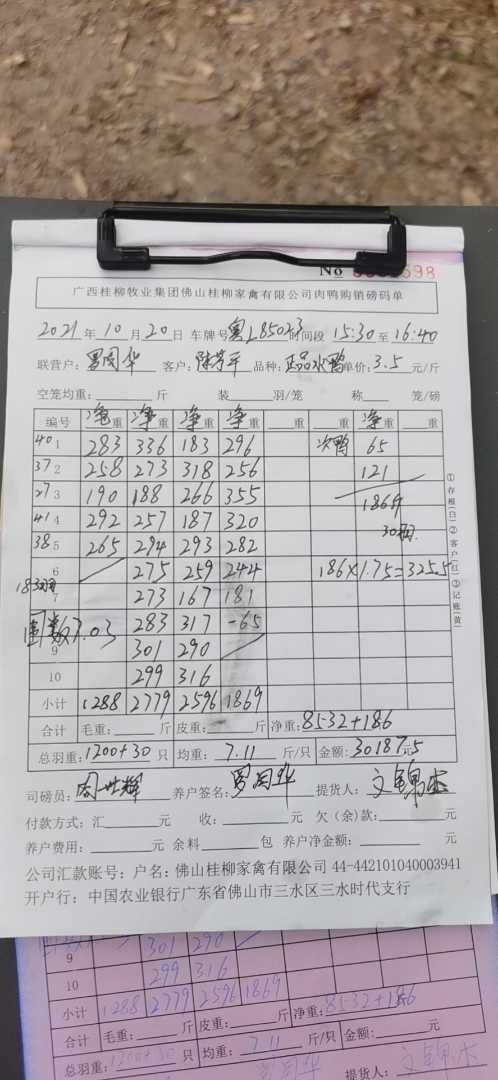 No 698
广西桂柳牧业集团佛山桂柳家禽有限公司肉鸭购销磅码单
2021年10月20日 车牌号粤L85023时间段 15:30至16:40
联营户: 客户: 品种:正品水鸭单价:3.5元/斤
空笼均重: 斤 装 羽/笼 称 笼/磅
编号 净重 净重 净重 净重 重 重 净重 重
40 1 283 336 183 296 次鸭 65
37 2 258 273 318 256 121
27 3 190 188 266 355 186斤
41 4 292 257 187 320 30羽
38 5 265 294 293 282
6 275 259 244 186×1.75=325.5
183羽 7 273 167 181
7.03 283 317 -65
9 301 290
10 299 316
小计 1288 2779 2596 1869
合计 毛重: 斤 皮重: 斤 净重:8532+186
总羽重:1200+30 只 均重: 7.11 斤/只 金额:30187.5元
司磅员: 养户签名: 提货人:文锦杰
付款方式:汇 元 收: 元 欠(余)款: 元
养户费用: 元 余料 包 养户净金额: 元
公司汇款账号:户名:佛山桂柳家禽有限公司 44-442101040003941
开户行:中国农业银行广东省佛山市三水区三水时代支行
①存根(白)②客户(红)③记账(黄)
9 301 290
10 299 316
小计 1288 2779 2596 1869
合计 毛重: 斤 皮重: 斤 净重:8532+186
总羽重:1200+30 只 均重: 7.11 斤/只 金额: 元
提货人:文锦杰